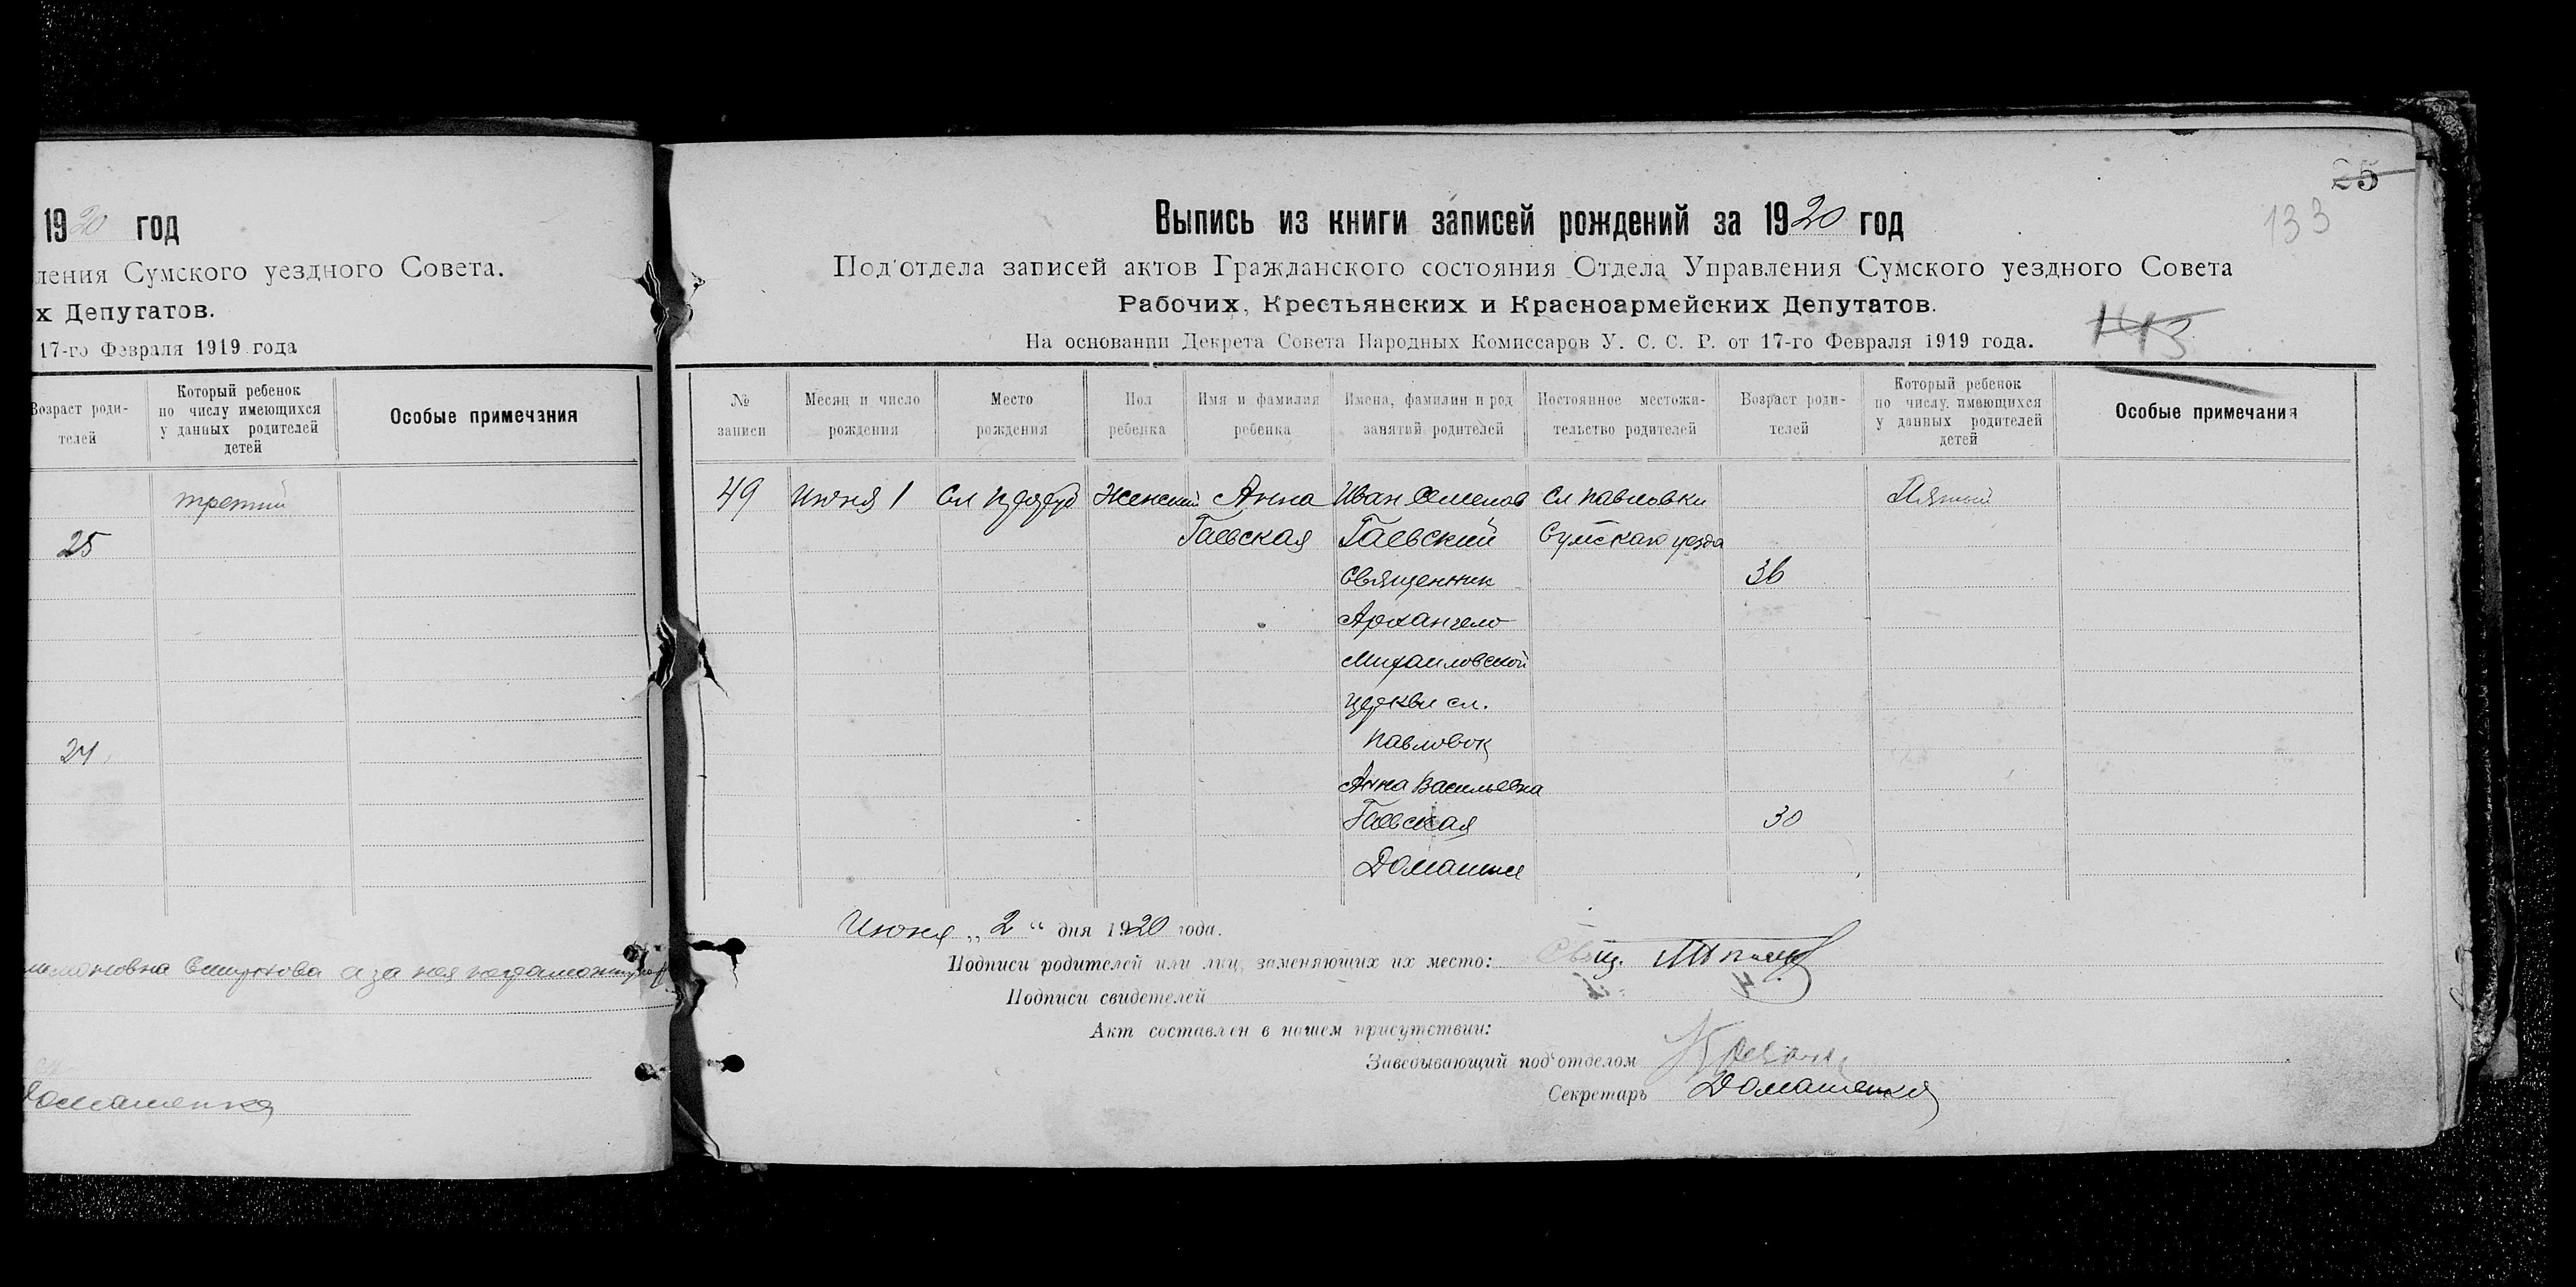 1920 год
ления Сумского уездного Совета.
х Депутатов.
17-го Февраля 1919 года
Возраст роди-
телей
Который ребенок
по числу имеющихся
у данных родителей
детей
Особые примечания
третий
25
24
а за нея
Домашенко
25
133
Выпись из книги записей рождений за 1920 год
Под'отдела записей актов Гражданского состояния Отдела Управления Сумского уездного Совета
Рабочих, Крестьянских и Красноармейских Депутатов.
На основании Декрета Совета Народных Комиссаров У. С. С. Р. от 17-го Февраля 1919 года.
143
№
записи
Месяц и число
рождения
Место
рождения
Пол
ребенка
Имя и фамилия
ребенка
Имена, фамилии и род
занятий родителей
Постоянное местожи-
тельство родителей
Возраст роди-
телей
Который ребенок
по числу имеющихся
у данных родителей
детей
Особые примечания
49 Июня 1 Сл Женский Анна Иван Семенов Сл Павловки Пятый
Гаевская Гаевский Сумскаго уезда
Священник 36
Архангело
Михаиловской
церкви сл.
Павловок
Анна Васильевна
Гаевская 30
Домашние
Июня „2“ дня 1920 года.
Подписи родителей или лиц, заменяющих их место: Свящ.
Подписи свидетелей
Акт составлен в нашем присутствии:
Заведывающий под'отделом
Секретарь Домашенко